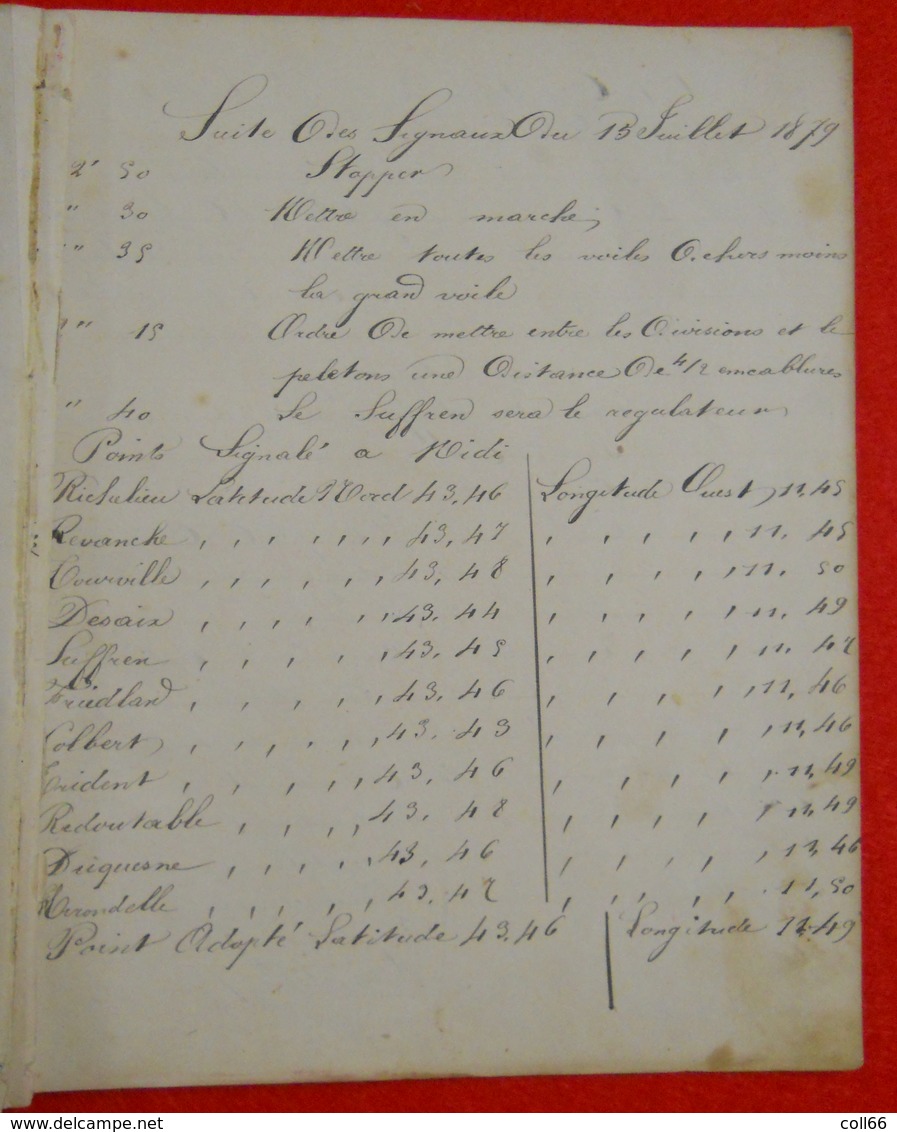 Suite Des Signaux Du 15 Juillet 1879
2' 50 Stopper
" 30 Mettre en marche
" 35 Mettre toutes les voiles Dehors moins
la grand voile
" 15 Ordre De mettre entre les Divisions et le
pelotons une Distance De 4/2 emcablures
" 40 Le Suffren sera le regulateur
Points Signalé a Midi
Richelieu Latitude Nord 43,46 Longitude Ouest 11,45
Revanche , , , , , , , 43,47 , , , , , 11, 45
Tourville , , , , , , 43, 48 , , , , , 11, 50
Desaix , , , , , , 43, 44 , , , , , 11, 49
Suffren , , , , , 43, 45 , , , , , 11, 47
Friedland , , , , , 43, 46 , , , , , 11, 46
Colbert , , , , , , 43, 43 , , , , , 11, 46
Trident , , , , , , 43, 46 , , , , , 11, 49
Redoutable , , , , 43, 48 , , , , , 11, 49
Duquesne , , , , , 43, 46 , , , , , 11, 46
Hirondelle , , , , , 43, 47 , , , , , 11, 50
Point Adopté Latitude 43,46 Longitude 11,49
delcampe.net
coll66